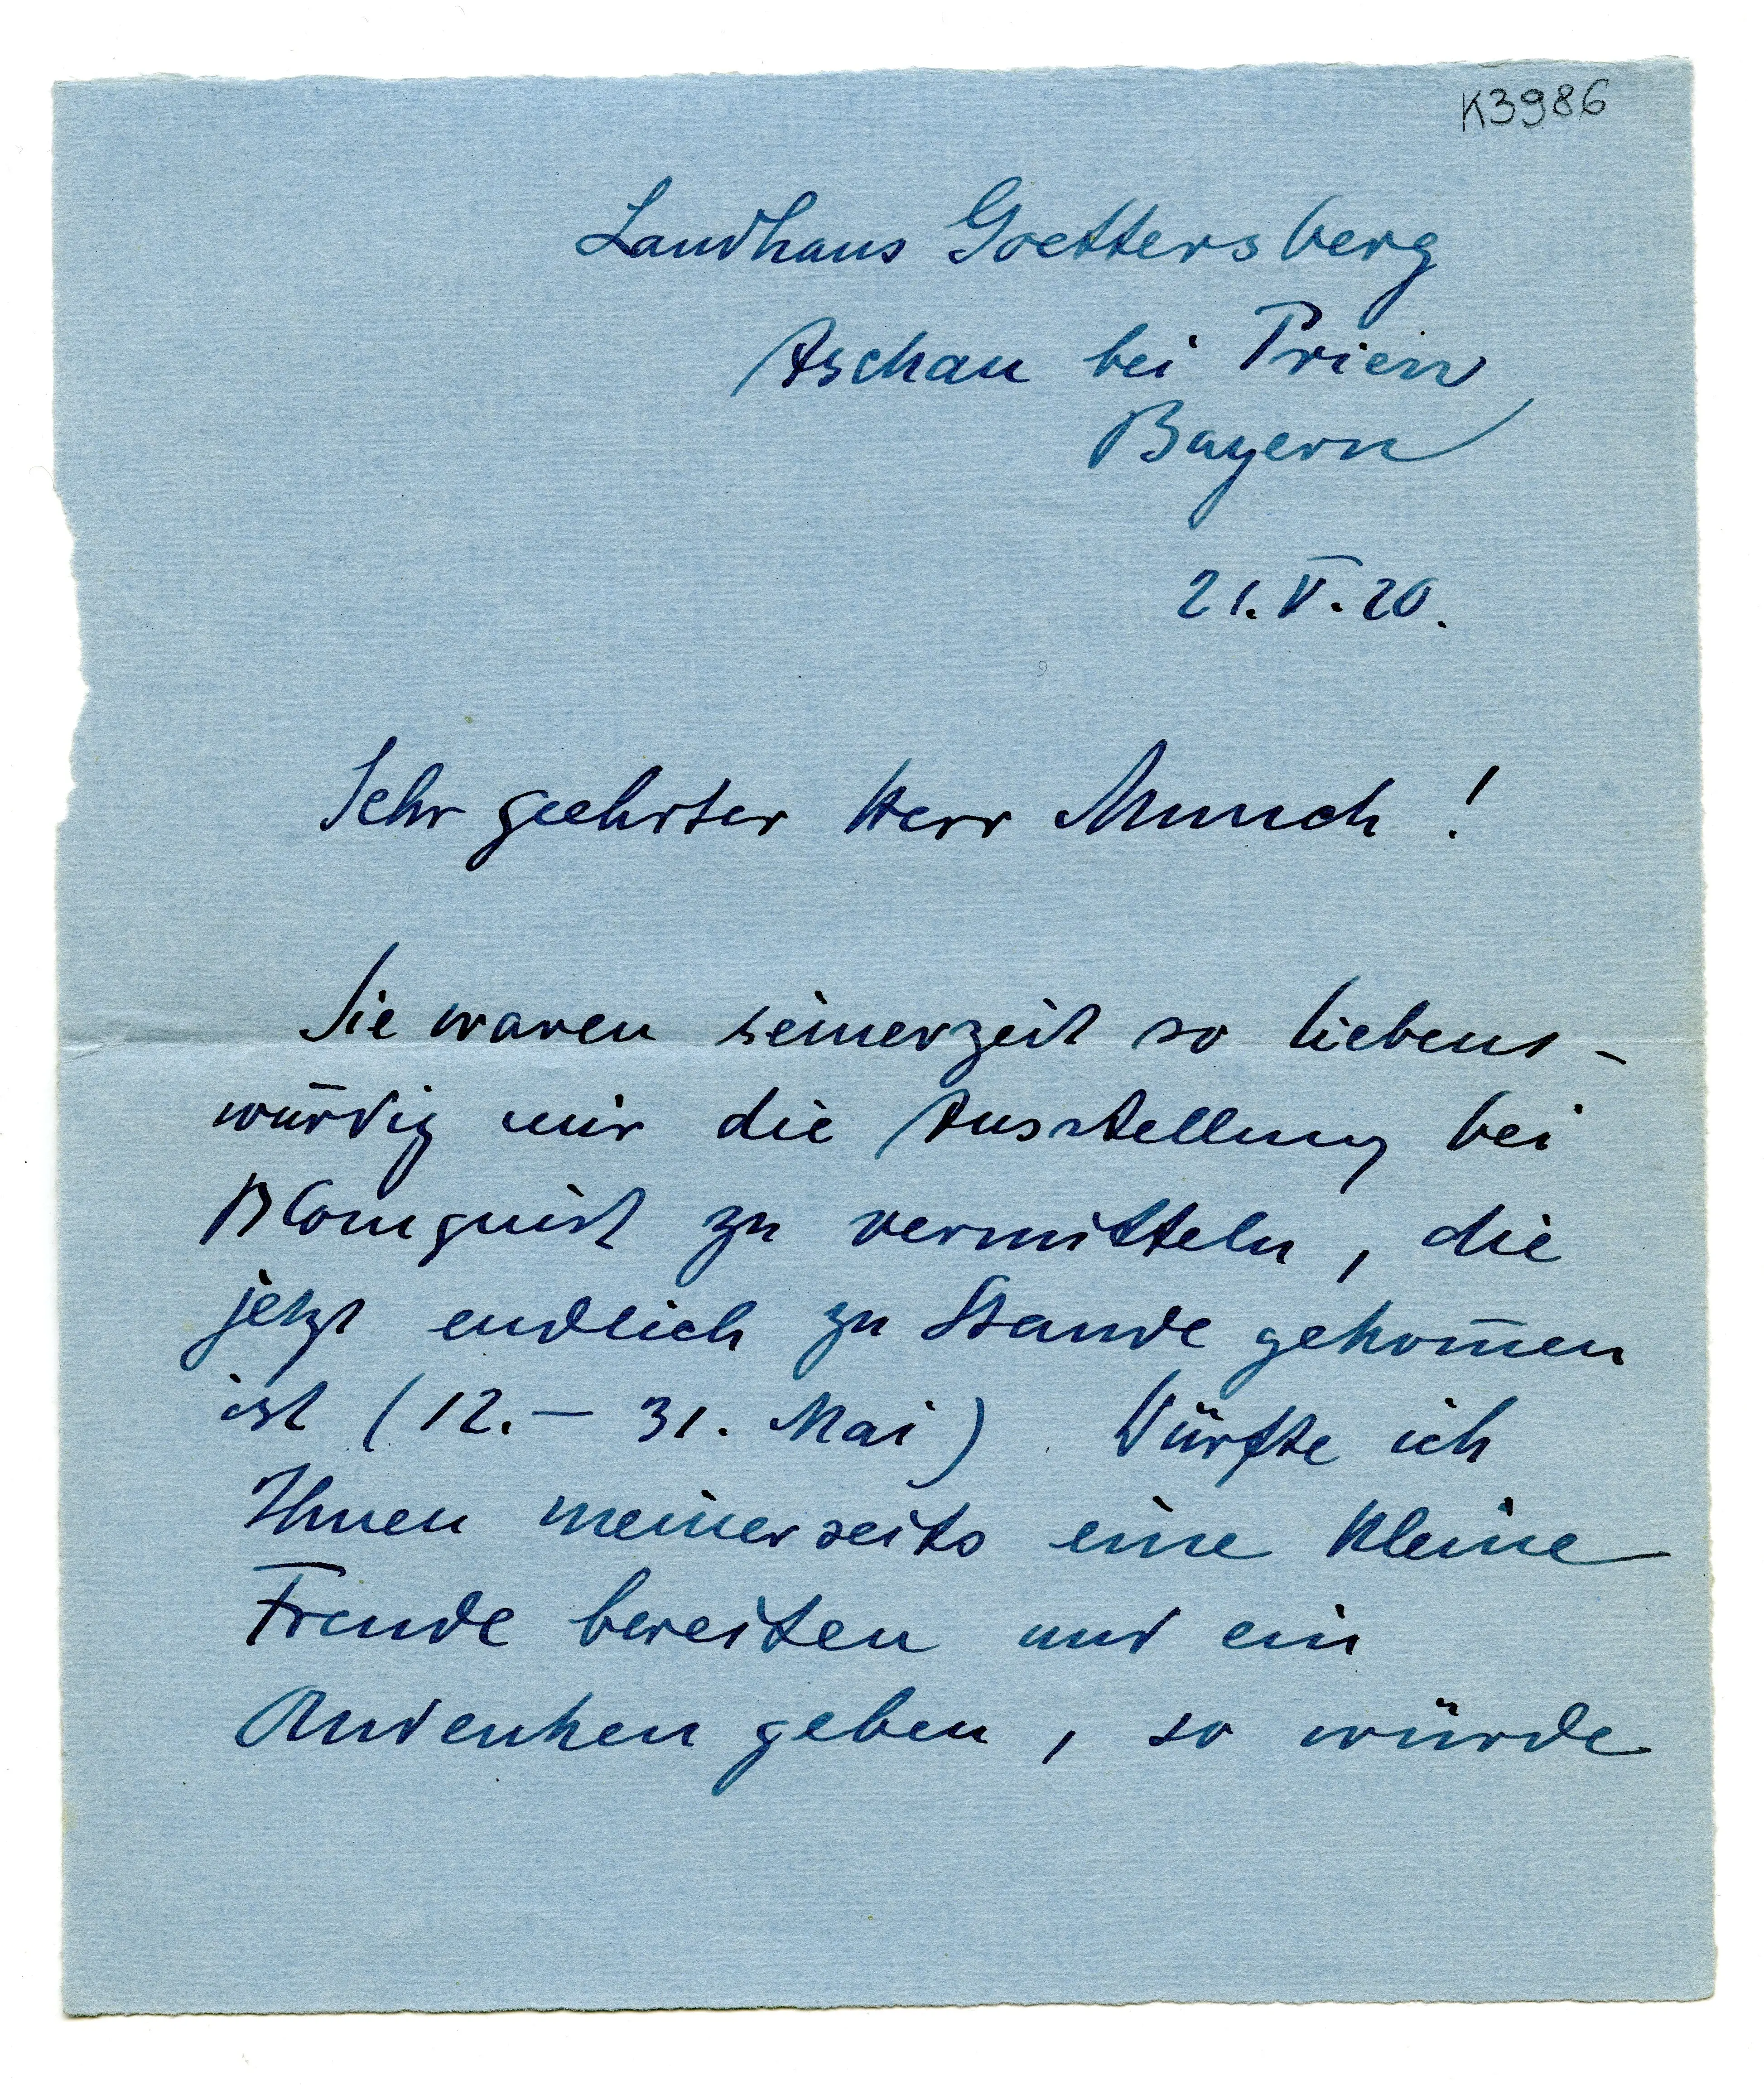 K3986
Landhaus Goettersberg
Aschau bei Prien
Bayern
21.V.20.
Sehr geehrter Herr Munch!
Sie waren seinerzeit so liebens-
würdig mir die Ausstellung bei
Blomquist zu vermitteln, die
jetzt endlich zu Stande gekom̅en
ist (12.– 31. Mai) Dürfte ich
Ihnen meinerseits eine kleine
Freude bereiten und ein
Andenken geben, so würde